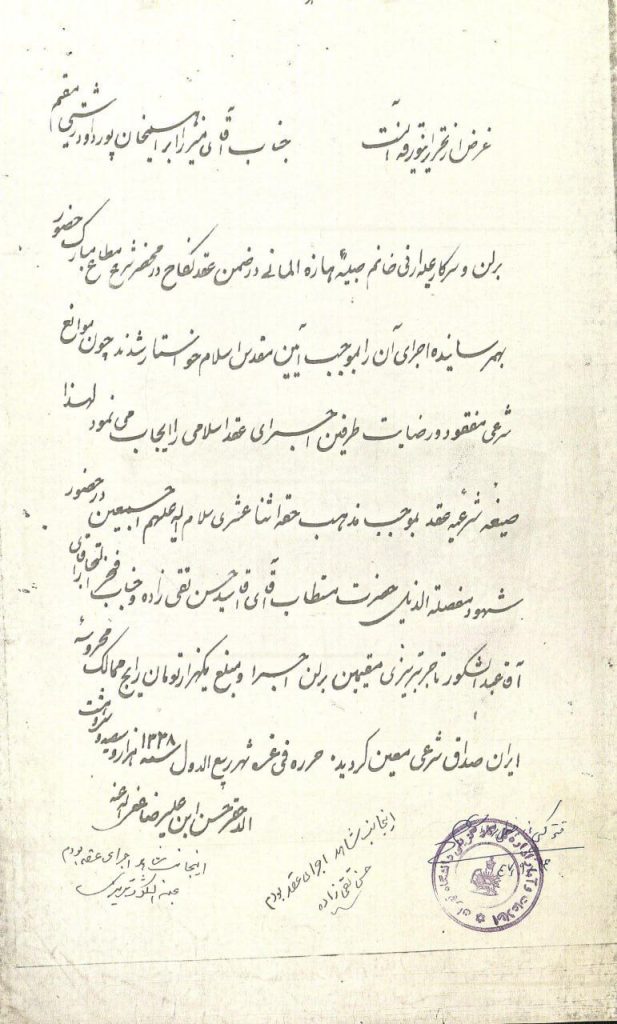 غرض از تحریر اینورقه آنست جناب آقای میرزا ابراهیمخان پورداود رشتی مقیم
برلن و سرکار علیه ارنی خانم صبیهٔ هازه المانی در ضمن عقد نکاح در محضر شرع مطاع مبارک حضور
بهمرسانده اجرای آن را بموجب آیین مقدس اسلام خواستار شدند چون موانع
شرعی مفقود و رضایت طرفین اجرای عقد اسلامی را ایجاب می نمود لهذا
صیغه شرعیه عقد بموجب مذهب حقه اثنا عشری سلام الله علیهم اجمعین در حضور
شهود مفصلة الذیل حضرت مستطاب آقای آقا سید حسن تقی زاده و جناب فخر التجار آقای
آقا عبدالشکور تاجر تبریزی مقیمین برلن اجرا و مبلغ یکهزار تومان رایج ممالک محروسه
ایران صداق شرعی معین گردید. حرره فی غره شهر ربیع الاول سنه ۱۳۳۸ هزار و سیصد و سی و هشت
الاحقر حسن ابن علیرضا غفر له عنه
اینجانب شاهد اجرای عقد بودم
حسن تقی زاده
اینجانب شاهد اجرای عقد بودم
عبدالشکور تبریزی